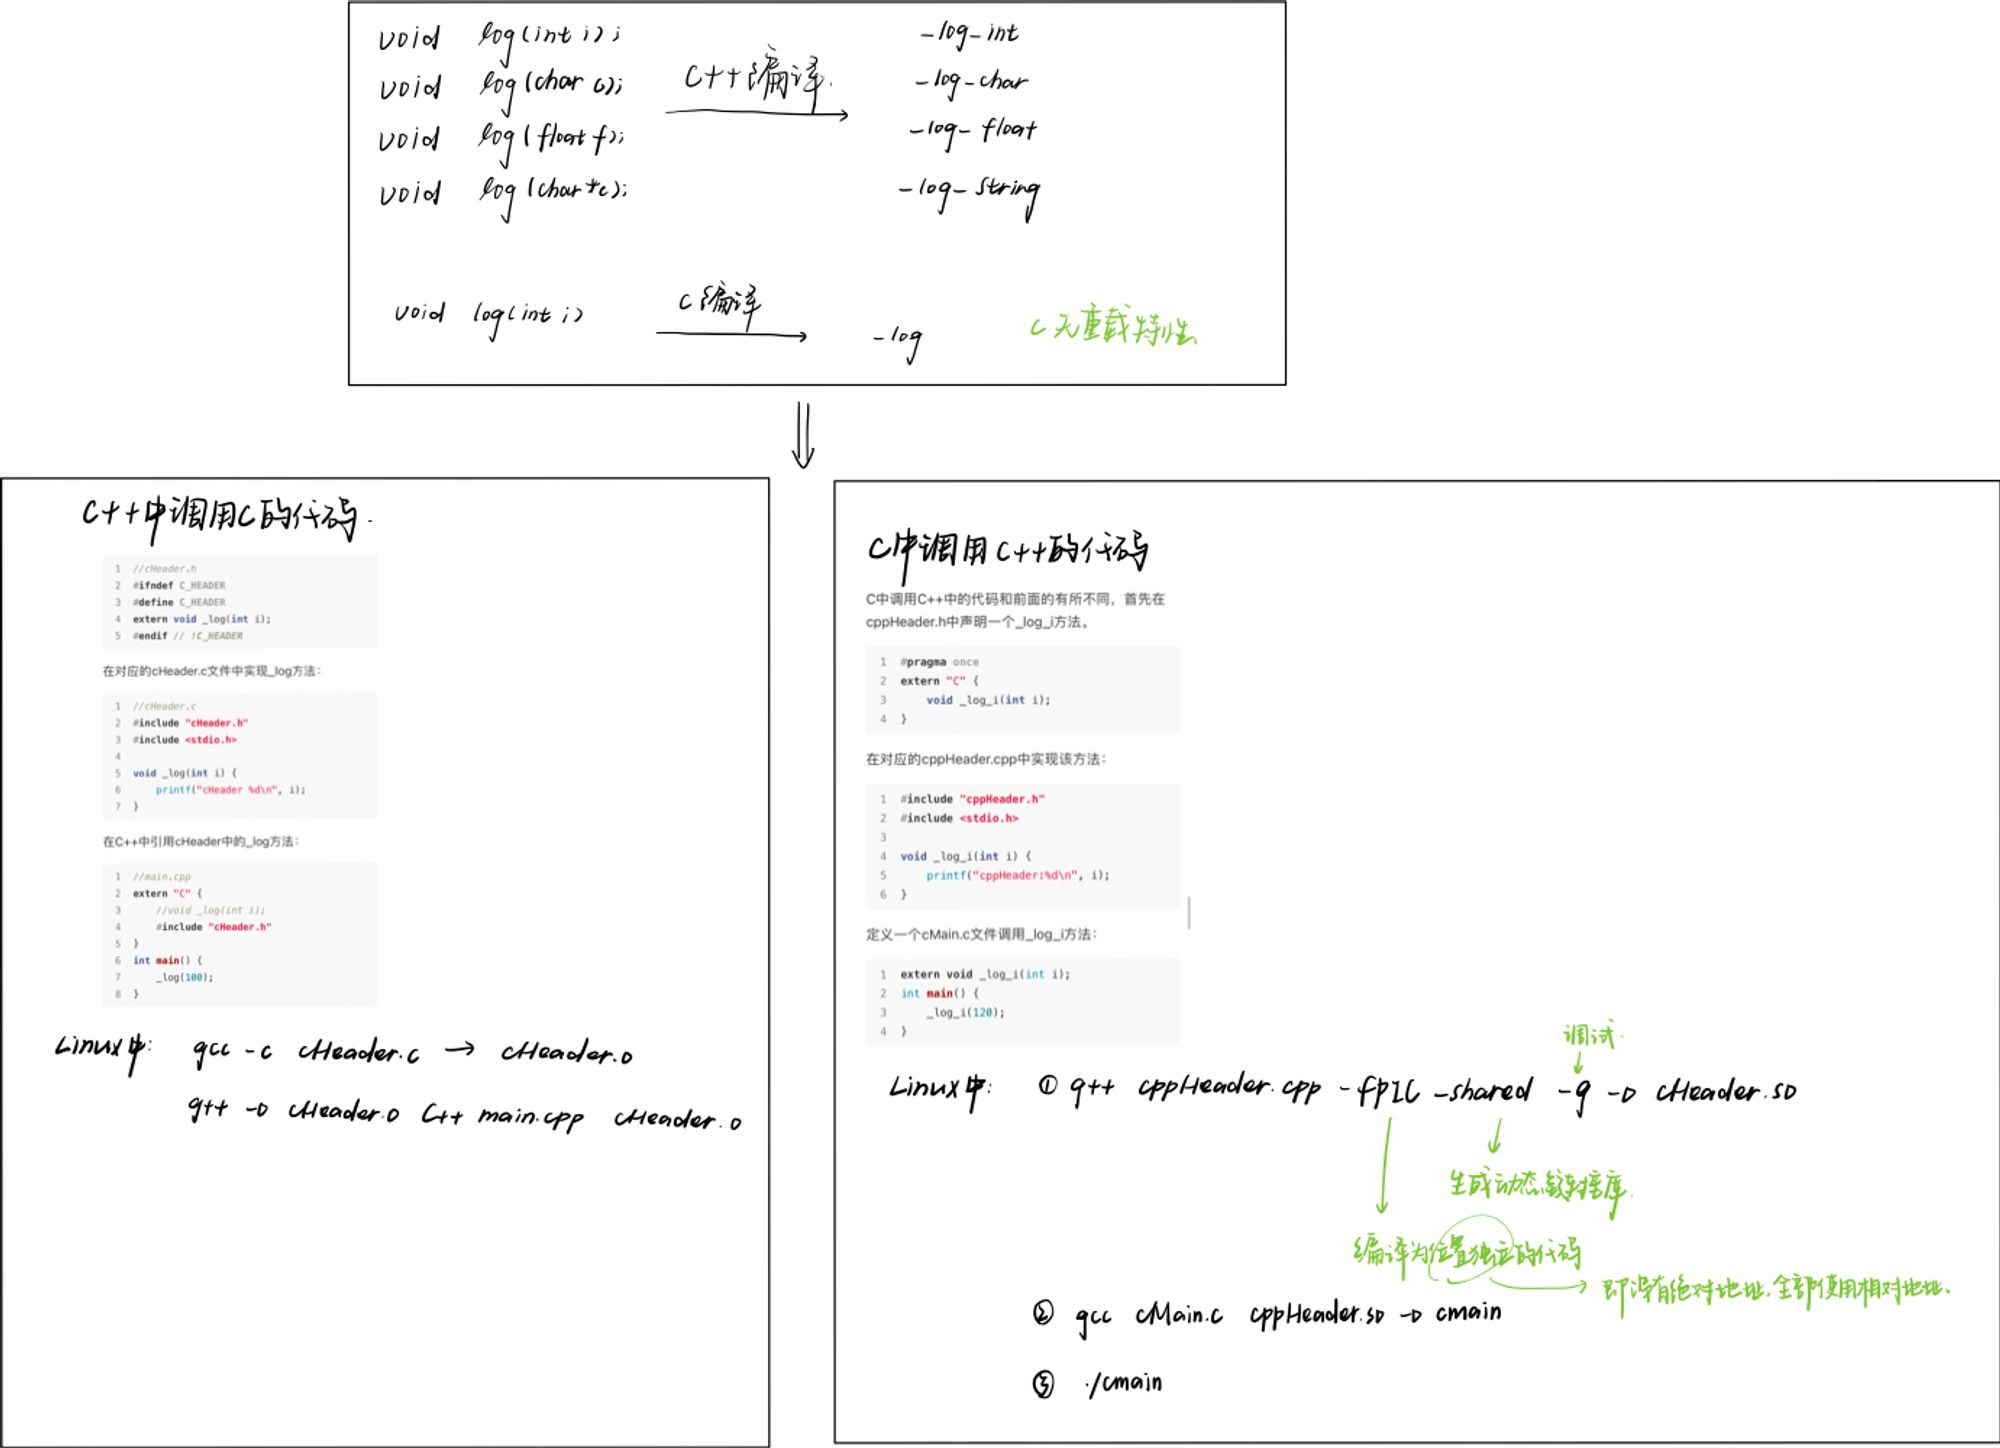 void log(int i);
void log(char c);
void log(float f);
void log(char *c);
C++编译.
_log_int
_log_char
_log_float
_log_string
void log(int i)
C编译
_log
C无重载特性
C++中调用C的代码.
1 //cHeader.h
2 #ifndef C_HEADER
3 #define C_HEADER
4 extern void _log(int i);
5 #endif // !C_HEADER
在对应的cHeader.c文件中实现_log方法：
1 //cHeader.c
2 #include "cHeader.h"
3 #include <stdio.h>
4
5 void _log(int i) {
6 printf("cHeader %d\n", i);
7 }
在C++中引用cHeader中的_log方法：
1 //main.cpp
2 extern "C" {
3 //void _log(int i);
4 #include "cHeader.h"
5 }
6 int main() {
7 _log(100);
8 }
Linux中: gcc -c cHeader.c → cHeader.o
g++ -o cHeader.o C++ main.cpp cHeader.o
C中调用C++的代码
C中调用C++中的代码和前面的有所不同，首先在
cppHeader.h中声明一个_log_i方法。
1 #pragma once
2 extern "C" {
3 void _log_i(int i);
4 }
在对应的cppHeader.cpp中实现该方法：
1 #include "cppHeader.h"
2 #include <stdio.h>
3
4 void _log_i(int i) {
5 printf("cppHeader:%d\n", i);
6 }
定义一个cMain.c文件调用_log_i方法：
1 extern void _log_i(int i);
2 int main() {
3 _log_i(120);
4 }
调试.
Linux中: ① g++ cppHeader.cpp -fpIC -shared -g -o cHeader.so
生成动态链接库.
编译为位置独立的代码
即没有绝对地址.全部使用相对地址.
② gcc cMain.c cppHeader.so -o cmain
③ ./cmain